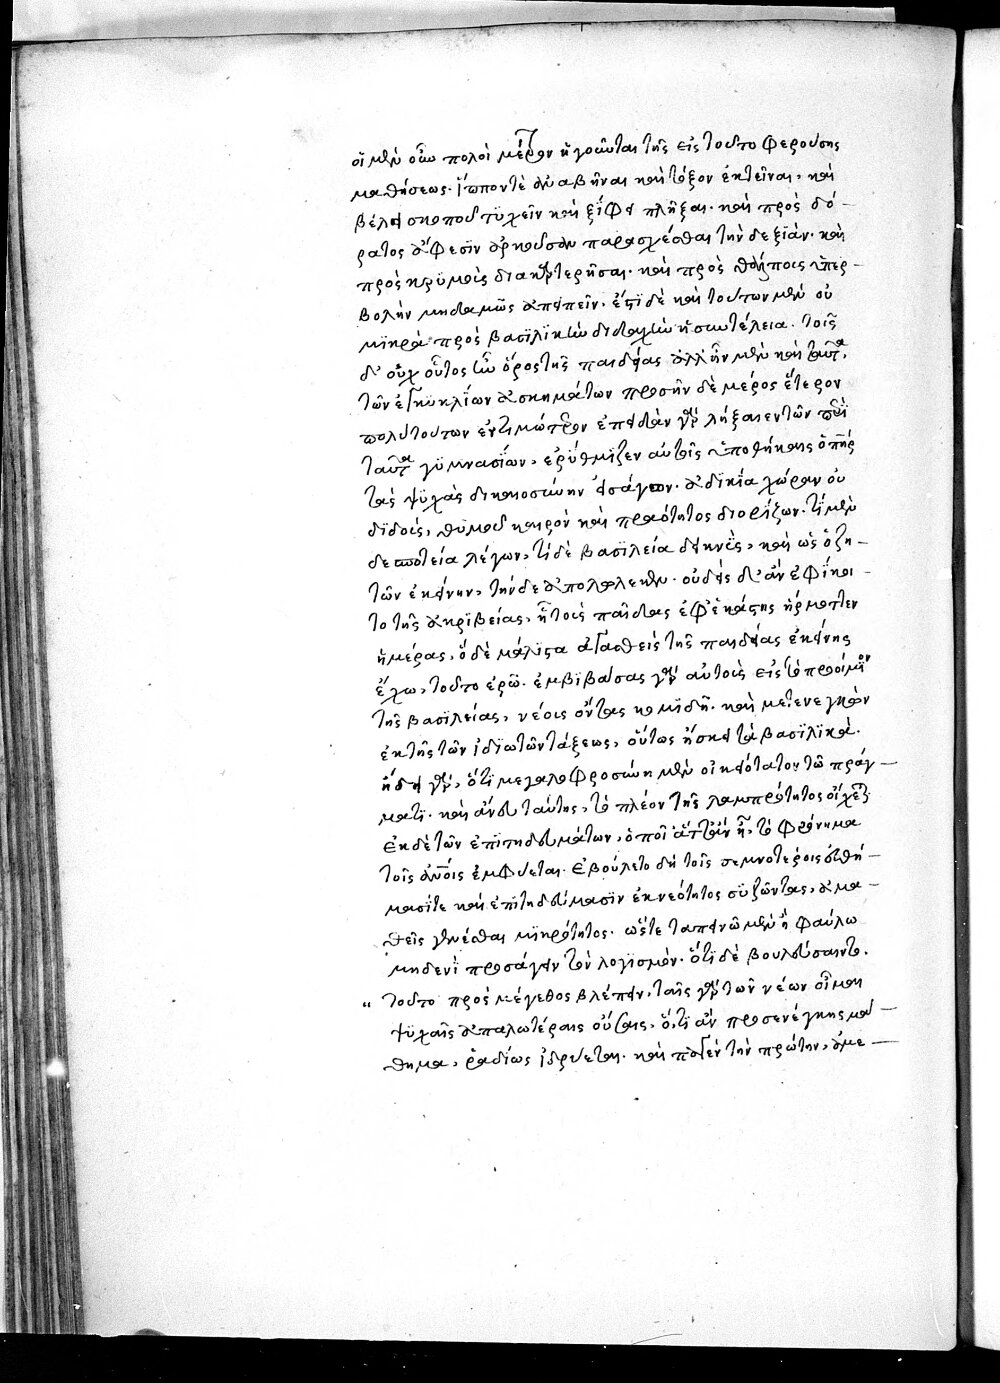 οἱ μὲν οὖν πολοὶ μέτρον ἡγοῦνται τῆς εἰς τοῦτο φερούσης
μαθήσεως. ἵππον τὲ ἀναβῆναι καὶ τόξον ἐκτεῖναι, καὶ
βέλει σκοποῦ τυχεῖν καὶ ξίφει πλῆξαι. καὶ πρὸς δό-
ρατος ἄφεσιν ἀρκοῦσαν παρασχέσθαι τὴν δεξιάν. καὶ
πρὸς κρυμοὺς διακαρτερῆσαι. καὶ πρὸς θάλπους ὑπερ-
βολὴν μηδαμῶς ἀπειπεῖν. ἔτι δὲ καὶ τούτων μὲν οὐ
μικρὰ πρὸς βασιλικὴν διδαχὴν ἡ συντέλεια. τοῖς
δ' οὐχ οὗτος ἦν ὅρος τῆς παιδείας ἀλλ' ἦν μὲν καὶ ταῦτα,
τῶν ἐγκυκλίων ἀσκημάτων προσῆν δὲ μέρος ἕτερον
πολὺ τούτων ἐντιμώτερον ἐπειδὰν γὰρ λήξαιεν τῶν περὶ
ταῦτα γυμνασίων, ἐρύθμιζεν αὐτοῖς ὑποθήκαις ὁ πατὴρ
τὰς ψυχὰς δικαιοσύνην εἰσάγων. ἀδικία χώραν οὐ
διδοὺς, θυμοῦ καιρὸν καὶ πραότητος διορίζων. τί μὲν
δεσποτεία λέγων, τί δὲ βασιλεία δεικνὺς, καὶ ὡς ὁ ζη-
τῶν ἐκείνην, τήνδε ἀπολώλεκεν. οὐδεὶς δ' ἂν ἐφίκοι-
το τῆς ἀκριβείας, ἣ τοὺς παῖδας ἐφ' ἑκάστης ἥρμοττεν
ἡμέρας, ὃ δὲ μάλιστα ἀγασθεὶς τῆς παιδείας ἐκείνης
ἔχω, τοῦτο ἐρῶ. ἐμβιβάσας γὰρ αὐτοὺς εἰς τὸ προοίμιον
τῆς βασιλείας, νέους ὄντας κομιδῆ. καὶ μετενεγκὼν
ἐκ τῆς τῶν ἰδιωτῶν τάξεως, οὕτως ἤσκει τὰ βασιλικά.
ᾔδει γὰρ, ὅτι μεγαλοφροσύνη μὲν οἰκειότατον τῶ πράγ-
ματι. καὶ ἄνευ ταύτης, τὸ πλέον τῆς λαμπρότητος οἴχεται
ἐκ δὲ τῶν ἐπιτηδευμάτων, ὁποῖ' ἄττ' ἂν ῇ, τὸ φρόνημα
τοῖς ἀνθρώποις ἐμφύεται. ἐβούλετο δὴ τοῖς σεμνοτέροις εὐθὴ-
μασί τε καὶ ἐπιτηδεύμασιν ἐκ νεότητος συζῶντας, ἀμα-
θεῖς γενέσθαι μικρότητος. ὥστε ταπεινῶ μὲν ἢ φαύλω
μηδενὶ προσάγειν τὸν λογισμόν. ὅτι δὲ βουλεύσαιντο.
" τοῦτο πρὸς μέγεθος βλέπειν, ταῖς γὰρ τῶν νέων οἶμαι
ψυχαῖς ἁπαλωτέραις οὔσαις, ὅ,τι ἂν προσενέγκῃς μά-
θημα, ῥαδίως ἱδρύεται. καὶ ποιεῖν τὴν πρώτην, ἀμε-